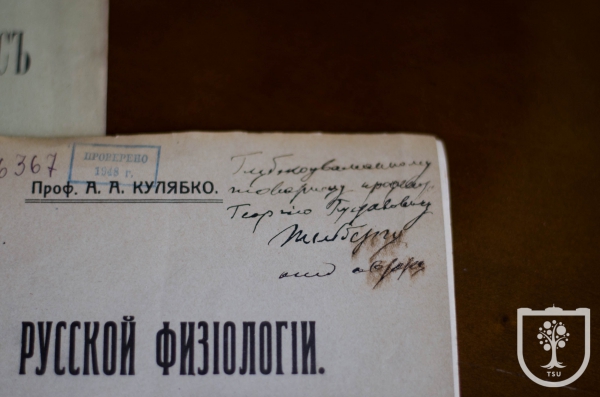 СЪ
6367
ПРОВЕРЕНО
1948 г.
Проф. А. А. КУЛЯБКО.
Глубокоуважаемому
товарищу профес.
Георгию Густавовичу
от автора
РУССКОЙ ФИЗІОЛОГІИ.
TSU